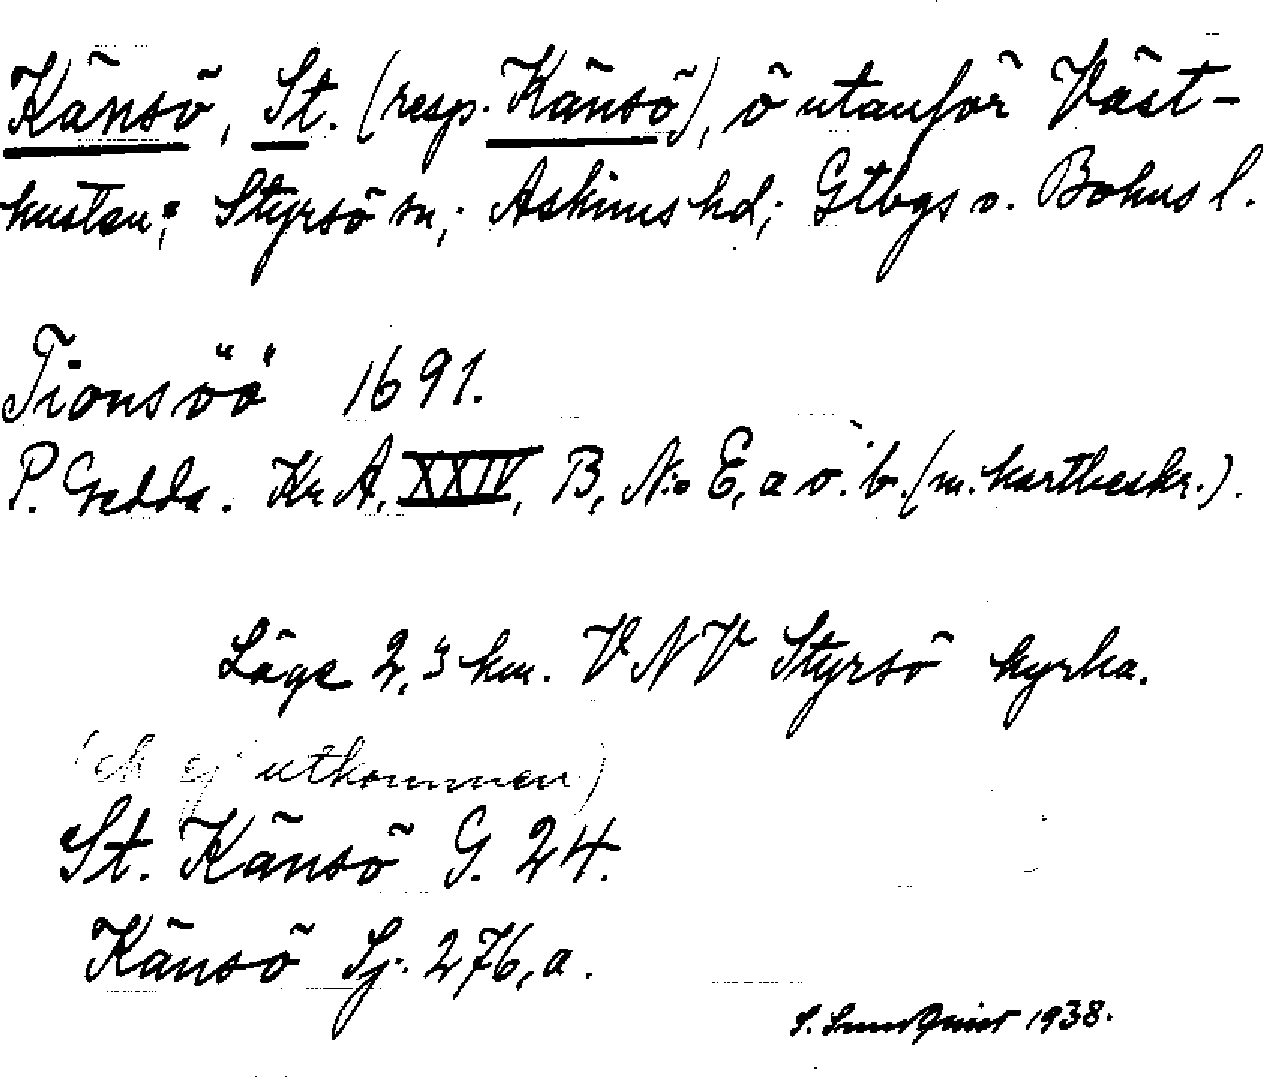 Känsö, St. (resp. Känsö), ö utanför Väst-
kusten; Styrsö sn; Askims hd; Gtbgs o. Bohus l.
Tionsöö 1691.
P. Gedda. Kr A, XXIV, B, N:o E, a o. b. (m. kartbeskr.).
Läge 2,3 km. VNV Styrsö kyrka.
(ek ej utkommen)
St. Känsö G. 24.
Känsö Sj. 276, a.
1938.